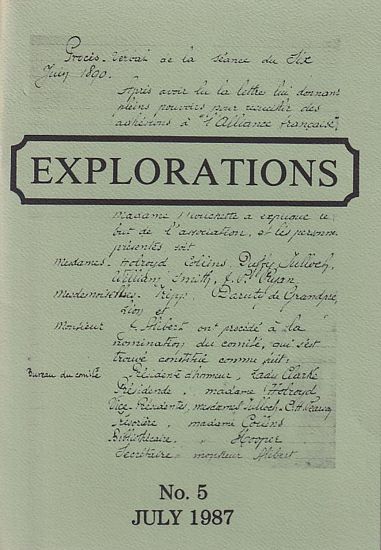 Procès-Verbal de la séance du Six
Juin 1890.
Après avoir lu la lettre lui donnant
pleins pouvoirs pour recueillir des
adhésions à "l'Alliance française",
EXPLORATIONS
Madame Mouchette a expliqué le
but de l'association, et les personnes
présentes soit
Mesdames. Holroyd, Collins, Duffy, Tulloch,
William Smith, J. P.
Mesdemoiselles. Tripp, Baruto de Grandpré,
Lion et
Monsieur Alibert ont procédé à la
nomination du comité, qui s'est
trouvé constitué comme suit:
Bureau du comité Présidente d'honneur, Lady Clarke
Présidente, madame Holroyd
Vice-Présidentes, mesdames Tulloch
Trésorière, madame Collins
Bibliothécaire, " Hooper
Secrétaire, monsieur Alibert
No. 5
JULY 1987